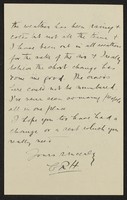 the weather has been raining &
cold but not all the time &
I have been out in all weathers
for the sake of the air & really
think the short change has
done me good. The
could not be numbered
I've never seen so many people
all in one place
I hope you too have had a
change or a rest which you
really need
Yours sincerely
CRH